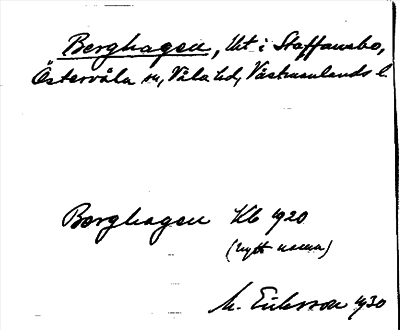 Berghagen, Lht i Staffansbo,
Östervåla sn, Våla hd, Västmanlands l.
Berghagen Kb 1920
(nytt namn)
M. Eriksson 1930